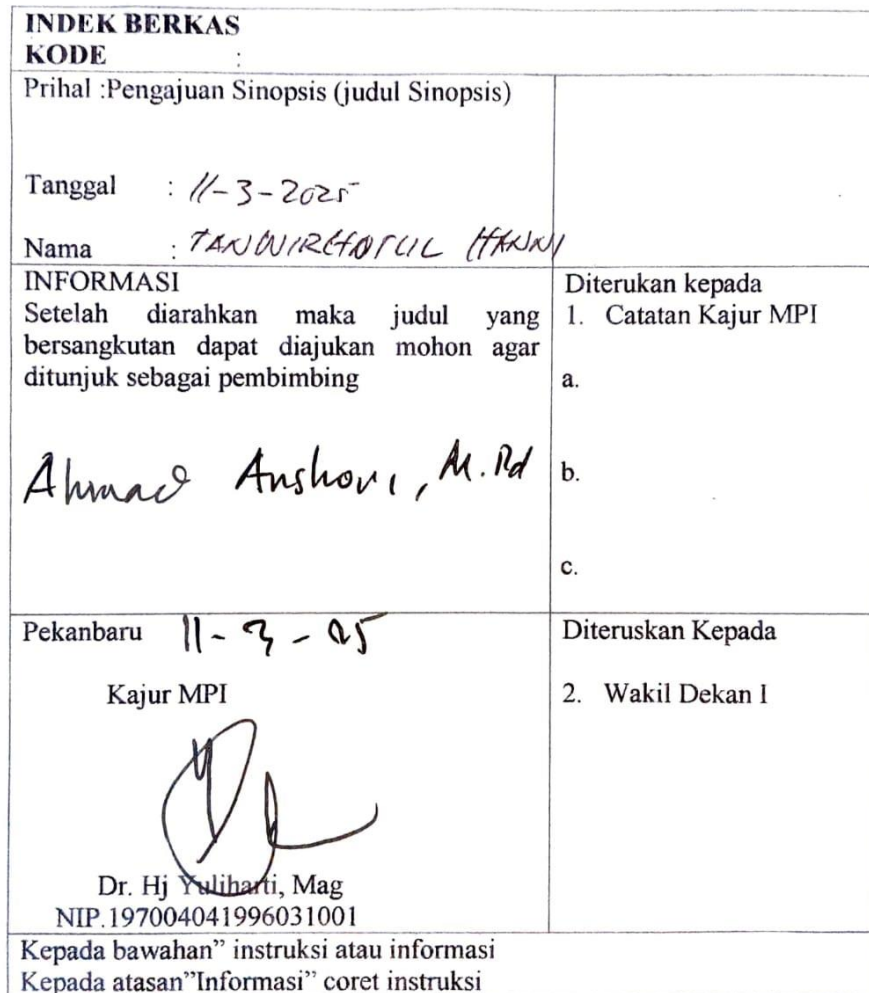 INDEK BERKAS
KODE :
Prihal :Pengajuan Sinopsis (judul Sinopsis)
Tanggal : 11-3-2025
Nama : TANWIRGHOTUL HANNI
INFORMASI
Setelah diarahkan maka judul yang
bersangkutan dapat diajukan mohon agar
ditunjuk sebagai pembimbing
Ahmad Anshori, M.Pd
Diterukan kepada
1. Catatan Kajur MPI
a.
b.
c.
Pekanbaru 11-3-25
Kajur MPI
Dr. Hj Yuliharti, Mag
NIP.197004041996031001
Diteruskan Kepada
2. Wakil Dekan I
Kepada bawahan” instruksi atau informasi
Kepada atasan”Informasi” coret instruksi